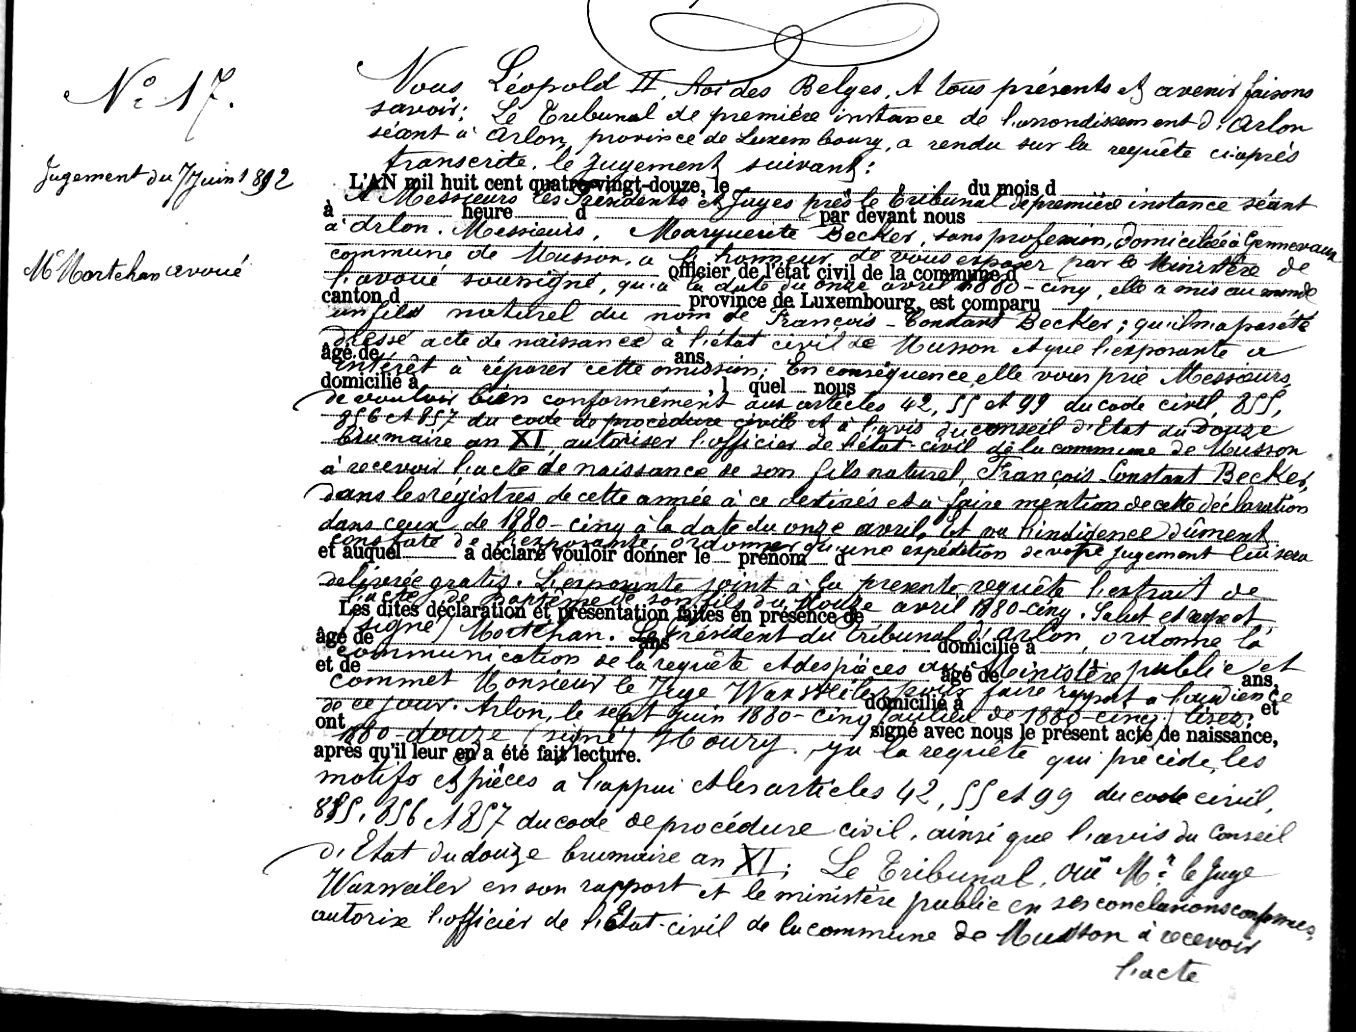 Nº 17.
Jugement du 7 Juin 1892
Mᵉ Mortehan avoué
Nous Léopold II, Roi des Belges, A tous présents et avenir faisons
savoir: Le Tribunal de première instance de l'arrondissement d'Arlon
séant à Arlon, province de Luxembourg, a rendu sur la requête ci-après
transcrite, le jugement suivant:
L'AN mil huit cent quatre-vingt-douze, le du mois d
A Messieurs les Présidents et Juges près le Tribunal de première instance séant
à heure d par devant nous
à Arlon. Messieurs, Marguerite Becker, sans profession, domiciliée à Gennevaux
commune de Musson, a l'honneur de vous exposer par le Ministère de
officier de l'état civil de la commune d
l'avoué soussigné, qu'à la date du onze avril 1880-cinq, elle a mis au monde
canton d province de Luxembourg, est comparu
un fils naturel du nom de François-Constant Becker; qu'il n'a pas été
dressé acte de naissance à l'état civil de Musson et que l'exposante a
âgé de ans
intérêt à réparer cette omission; En conséquence, elle vous prie Messieurs,
domicilié à , l quel nous
de vouloir bien conformément aux articles 42, 55 et 99 du code civil, 855,
856 et 857 du code de procédure civile et à l'avis du conseil d'Etat du douze
brumaire an XI, autoriser l'officier de l'état-civil de la commune de Musson
à recevoir l'acte de naissance de son fils naturel, François-Constant Becker,
dans les régistres de cette année à ce destinés et à faire mention de cette déclaration
dans ceux de 1880-cinq à la date du onze avril, Et vu l'indigence dûment
constatée de l'exposante, ordonner qu'une expédition de votre jugement lui sera
et auquel a déclaré vouloir donner le prénom d
délivrée gratis. L'exposante joint à la présente requête l'extrait de
l'acte de Baptême de son fils du douze avril 1880-cinq. Salut et respect,
Les dites déclaration et présentation faites en présence de
(signé) Mortehan. Le Président du Tribunal d'Arlon, ordonne la
âgé de ans domicilié à
communication de la requête et des pièces au Ministère public et
et de âgé de ans,
commet Monsieur le Juge Waxweiler pour faire rapport à l'audience
domicilié à et
de ce jour. Arlon, le sept Juin 1880-cinq (au lieu de 1880-cinq) lisez:
ont signé avec nous le présent acte de naissance,
1880-douze (signé) Houry. Vu la requête qui précède, les
après qu'il leur en a été fait lecture.
motifs et pièces à l'appui et les articles 42, 55 et 99 du code civil,
855, 856 et 857 du code de procédure civil, ainsi que l'avis du Conseil
d'Etat du douze brumaire an XI; Le Tribunal, ouï Mʳ le Juge
Waxweiler en son rapport et le ministère public en ses conclusions conformes,
autorise l'officier de l'Etat-civil de la commune de Musson à recevoir
l'acte